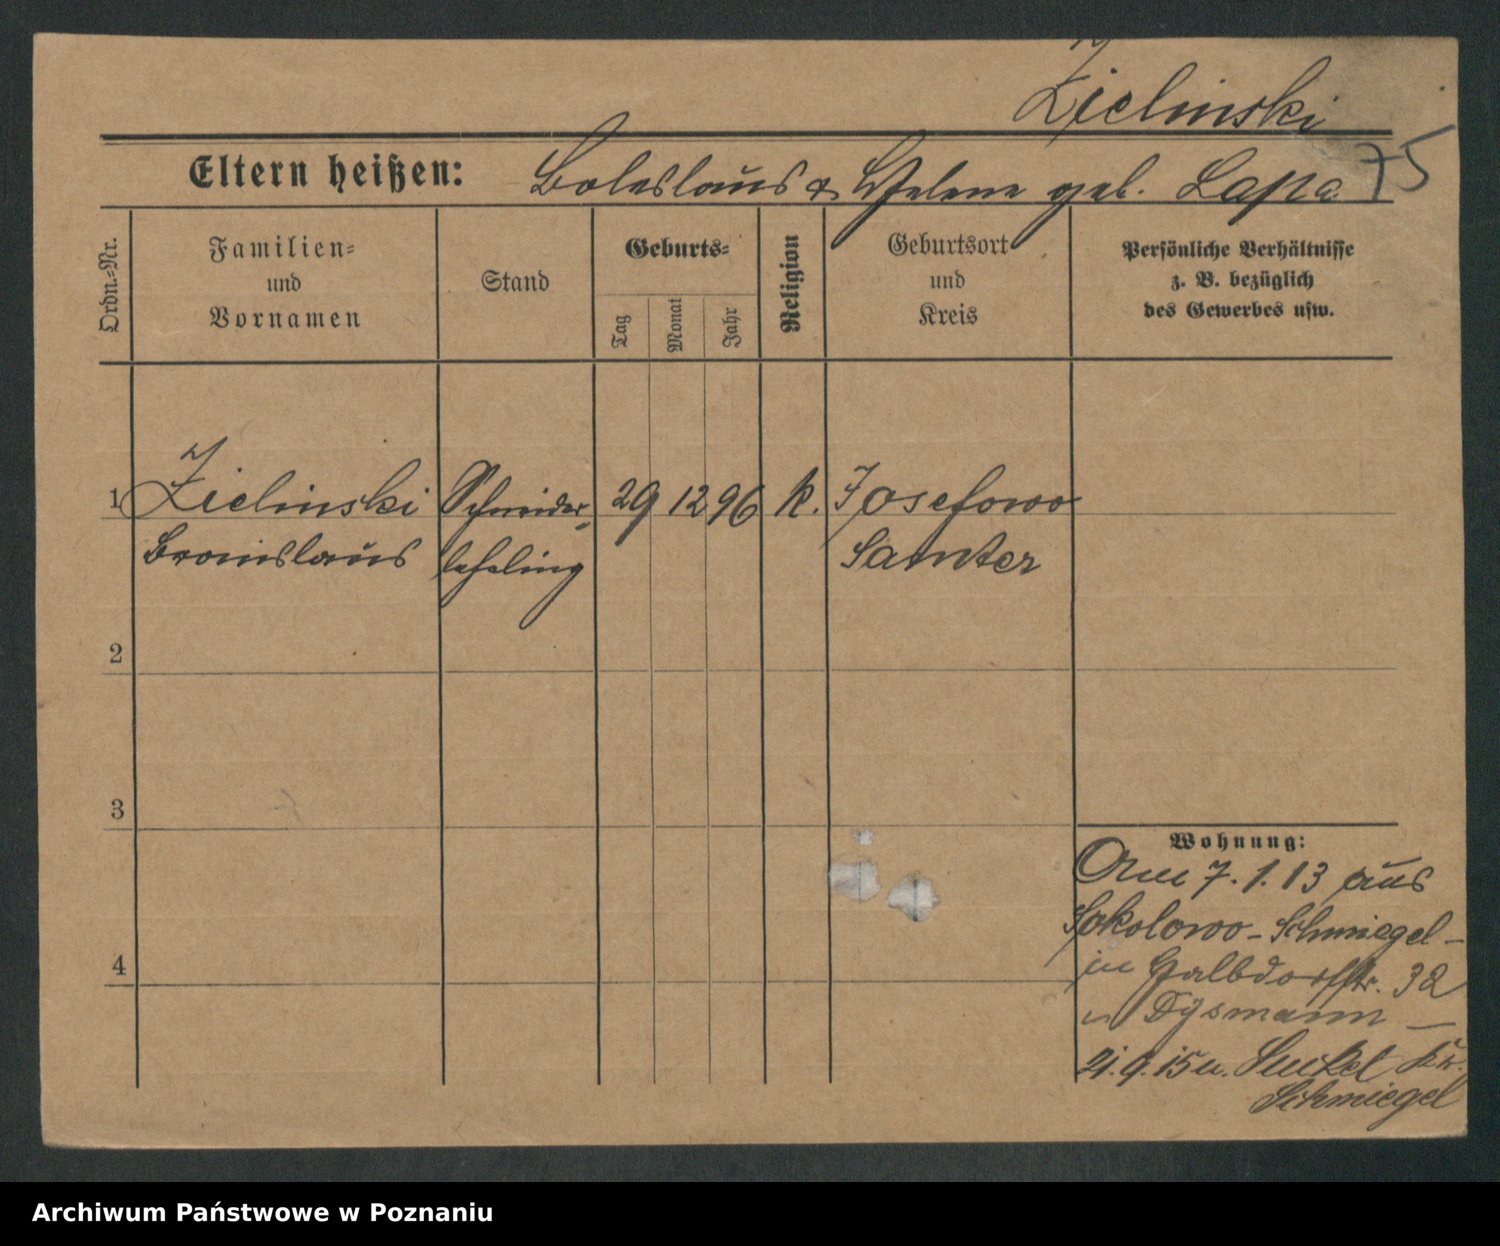 Zielinski
Eltern heißen: Boleslaus & Helene geb. Lapa 75
Ordn.-Nr.
Familien-
und
Vornamen
Stand
Geburts-
Tag
Monat
Jahr
Religion
Geburtsort
und
Kreis
Persönliche Verhältnisse
z. B. bezüglich
des Gewerbes usw.
1 Zielinski Schneider- 29 12 96 k. Josefowo
Bronislaus lehrling Samter
2
3
4
Wohnung:
Am 7.1.13 aus
Sokolowo - Schmiegel -
in 32
-
21.9.15 n. Kr.
Schmiegel
Archiwum Państwowe w Poznaniu